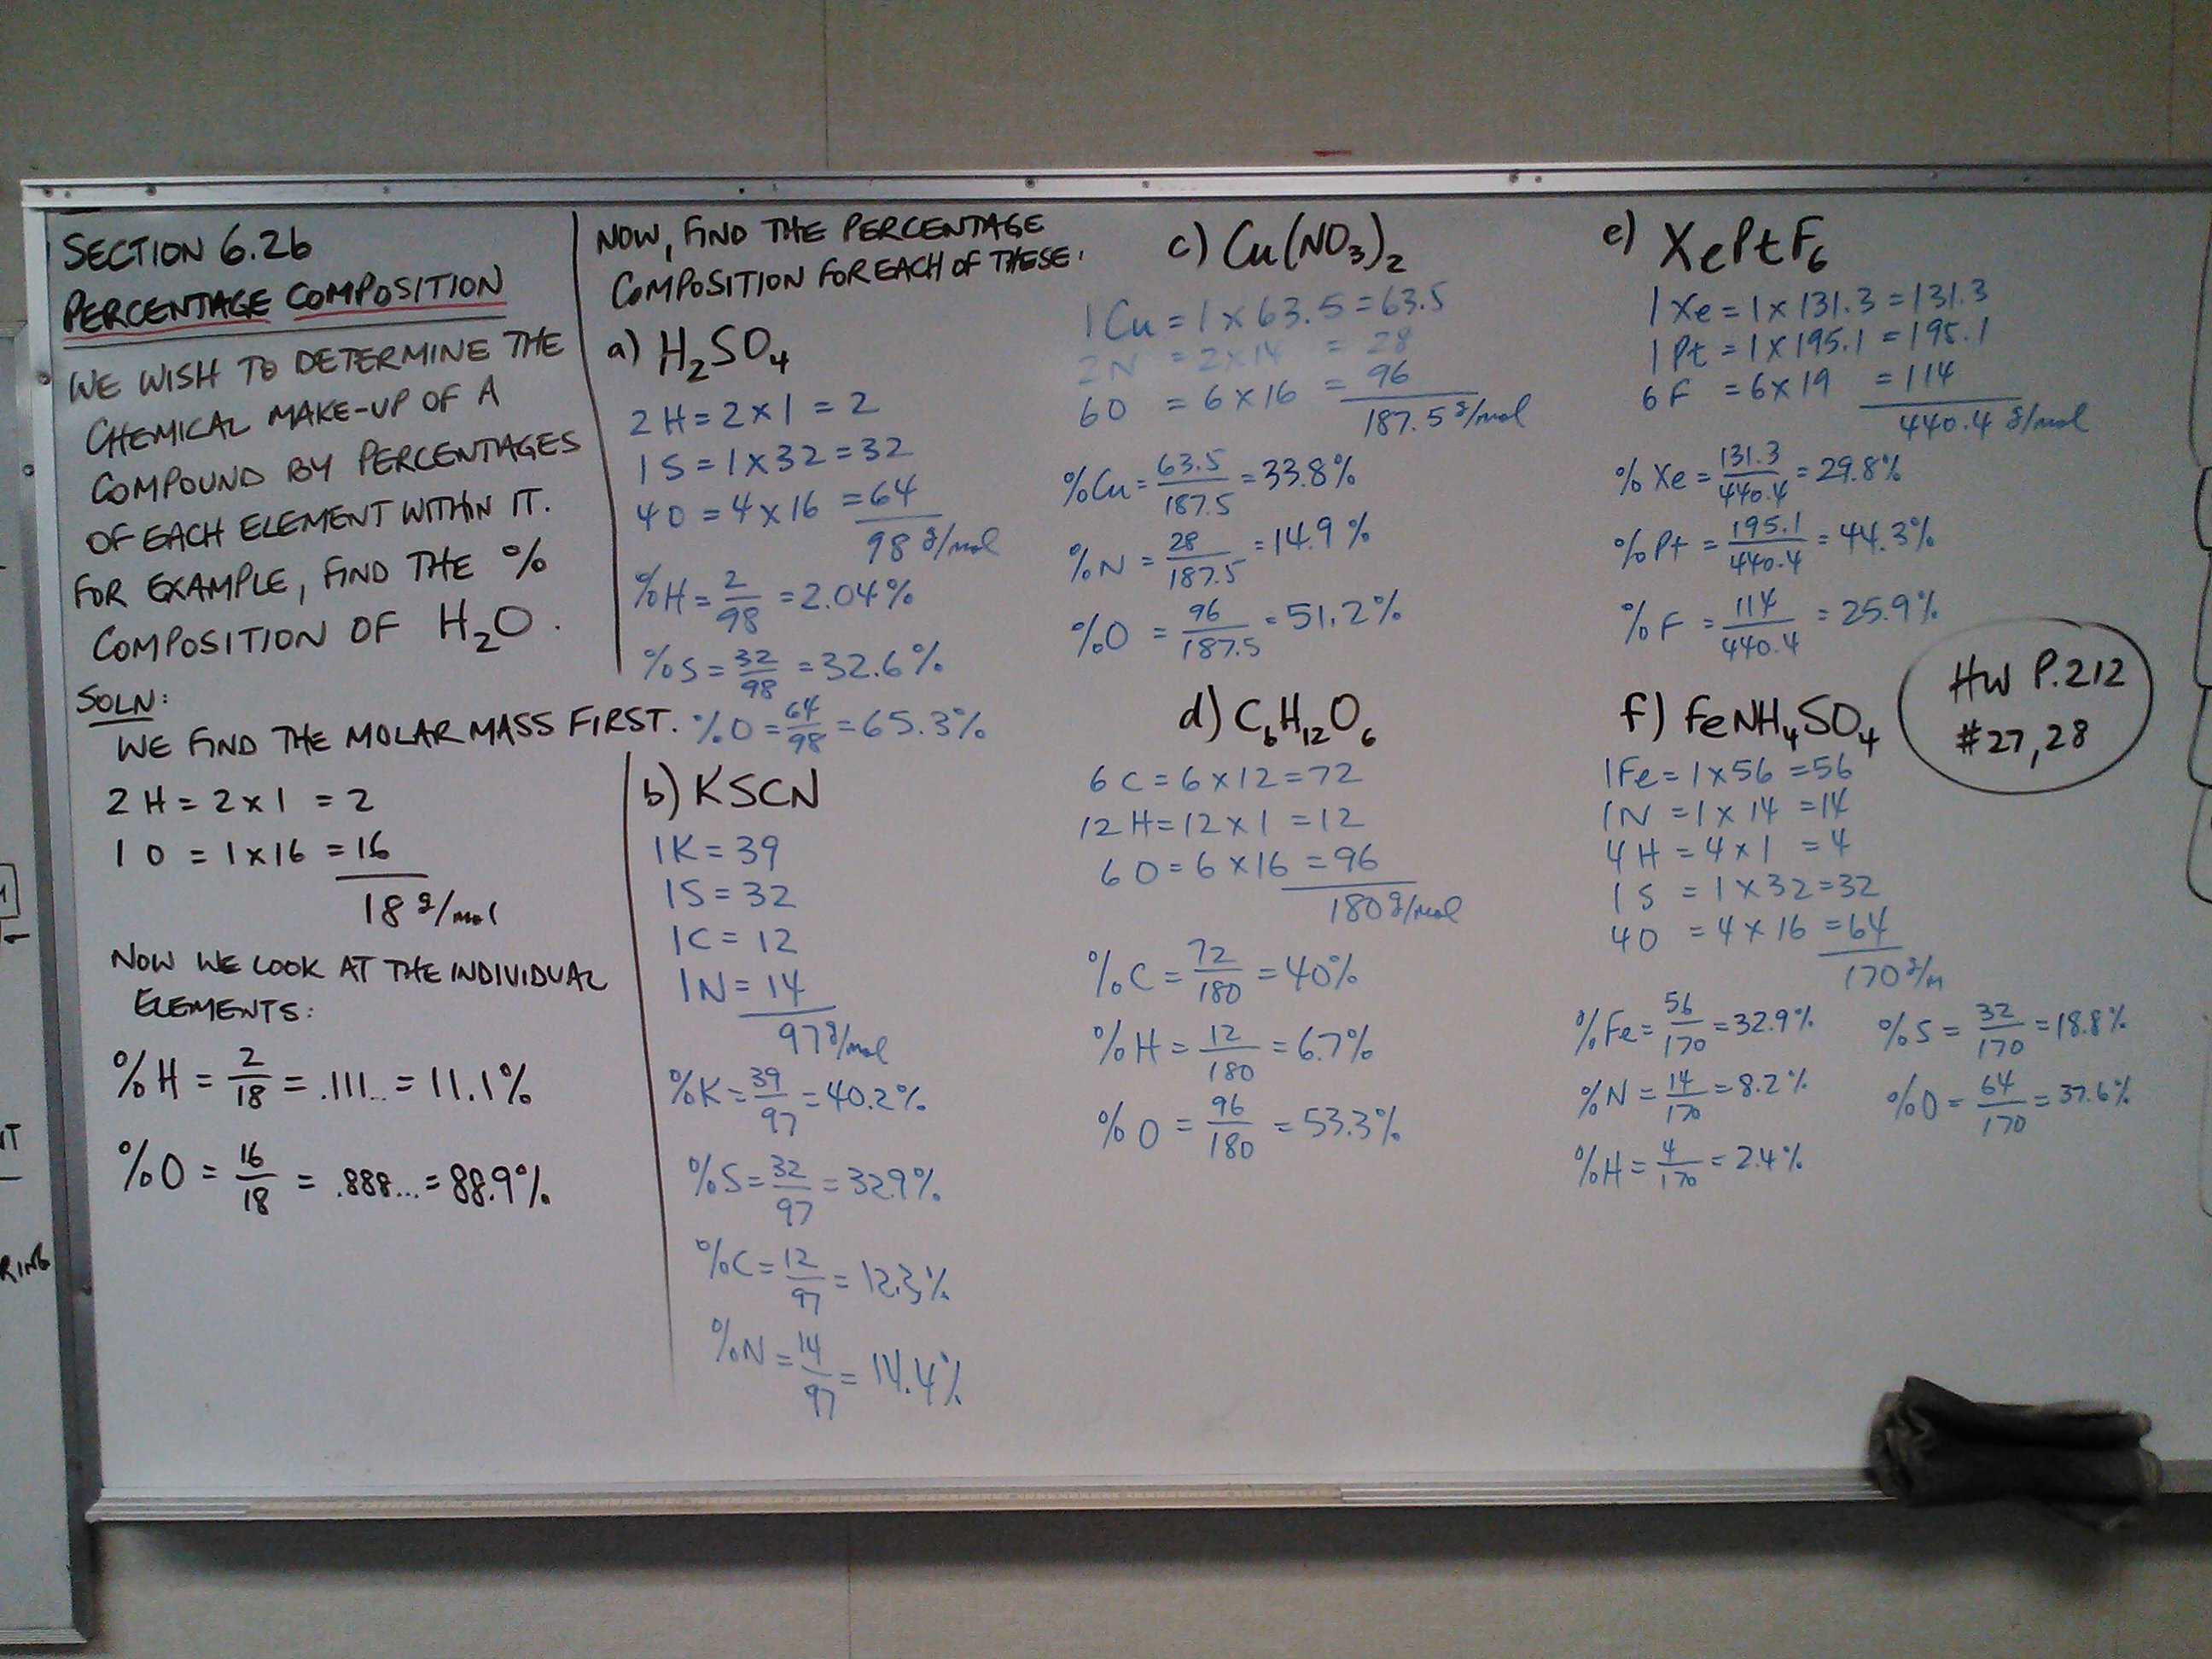 SECTION 6.2b
PERCENTAGE COMPOSITION
WE WISH TO DETERMINE THE
CHEMICAL MAKE-UP OF A
COMPOUND BY PERCENTAGES
OF EACH ELEMENT WITHIN IT.
FOR EXAMPLE, FIND THE %
COMPOSITION OF H₂O.
SOLN:
WE FIND THE MOLAR MASS FIRST.
2 H = 2 x 1 = 2
1 O = 1 x 16 = 16
18 g/mol
NOW WE LOOK AT THE INDIVIDUAL
ELEMENTS:
%H = 2/18 = .111... = 11.1%
%O = 16/18 = .888... = 88.9%
NOW, FIND THE PERCENTAGE
COMPOSITION FOR EACH OF THESE:
a) H₂SO₄
2 H = 2 x 1 = 2
1 S = 1 x 32 = 32
4 O = 4 x 16 = 64
98 g/mol
%H = 2/98 = 2.04%
%S = 32/98 = 32.6%
%O = 64/98 = 65.3%
b) KSCN
1K = 39
1S = 32
1C = 12
1N = 14
97 g/mol
%K = 39/97 = 40.2%
%S = 32/97 = 32.9%
%C = 12/97 = 12.3%
%N = 14/97 = 14.4%
c) Cu(NO₃)₂
1 Cu = 1 x 63.5 = 63.5
2 N = 2 x 14 = 28
6 O = 6 x 16 = 96
187.5 g/mol
%Cu = 63.5/187.5 = 33.8%
%N = 28/187.5 = 14.9%
%O = 96/187.5 = 51.2%
d) C₆H₁₂O₆
6 C = 6 x 12 = 72
12 H = 12 x 1 = 12
6 O = 6 x 16 = 96
180 g/mol
%C = 72/180 = 40%
%H = 12/180 = 6.7%
%O = 96/180 = 53.3%
e) XePtF₆
1 Xe = 1 x 131.3 = 131.3
1 Pt = 1 x 195.1 = 195.1
6 F = 6 x 19 = 114
440.4 g/mol
%Xe = 131.3/440.4 = 29.8%
%Pt = 195.1/440.4 = 44.3%
%F = 114/440.4 = 25.9%
HW P.212
#27, 28
f) FeNH₄SO₄
1Fe = 1 x 56 = 56
1N = 1 x 14 = 14
4 H = 4 x 1 = 4
1 S = 1 x 32 = 32
4O = 4 x 16 = 64
170 g/m
%Fe = 56/170 = 32.9%
%N = 14/170 = 8.2%
%H = 4/170 = 2.4%
%S = 32/170 = 18.8%
%O = 64/170 = 37.6%